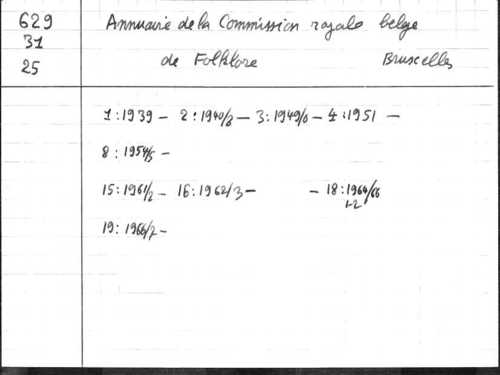 629 Annuaire de la Commission royale belge
31
25 de Folklore Bruxelles
1:1939 - 2:1940/8 - 3:1949/0 - 4:1951 -
8: 1954/5 -
15:1961/2 - 16:1962/3 - - 18:1964/66
1-2
19: 1966/7 -